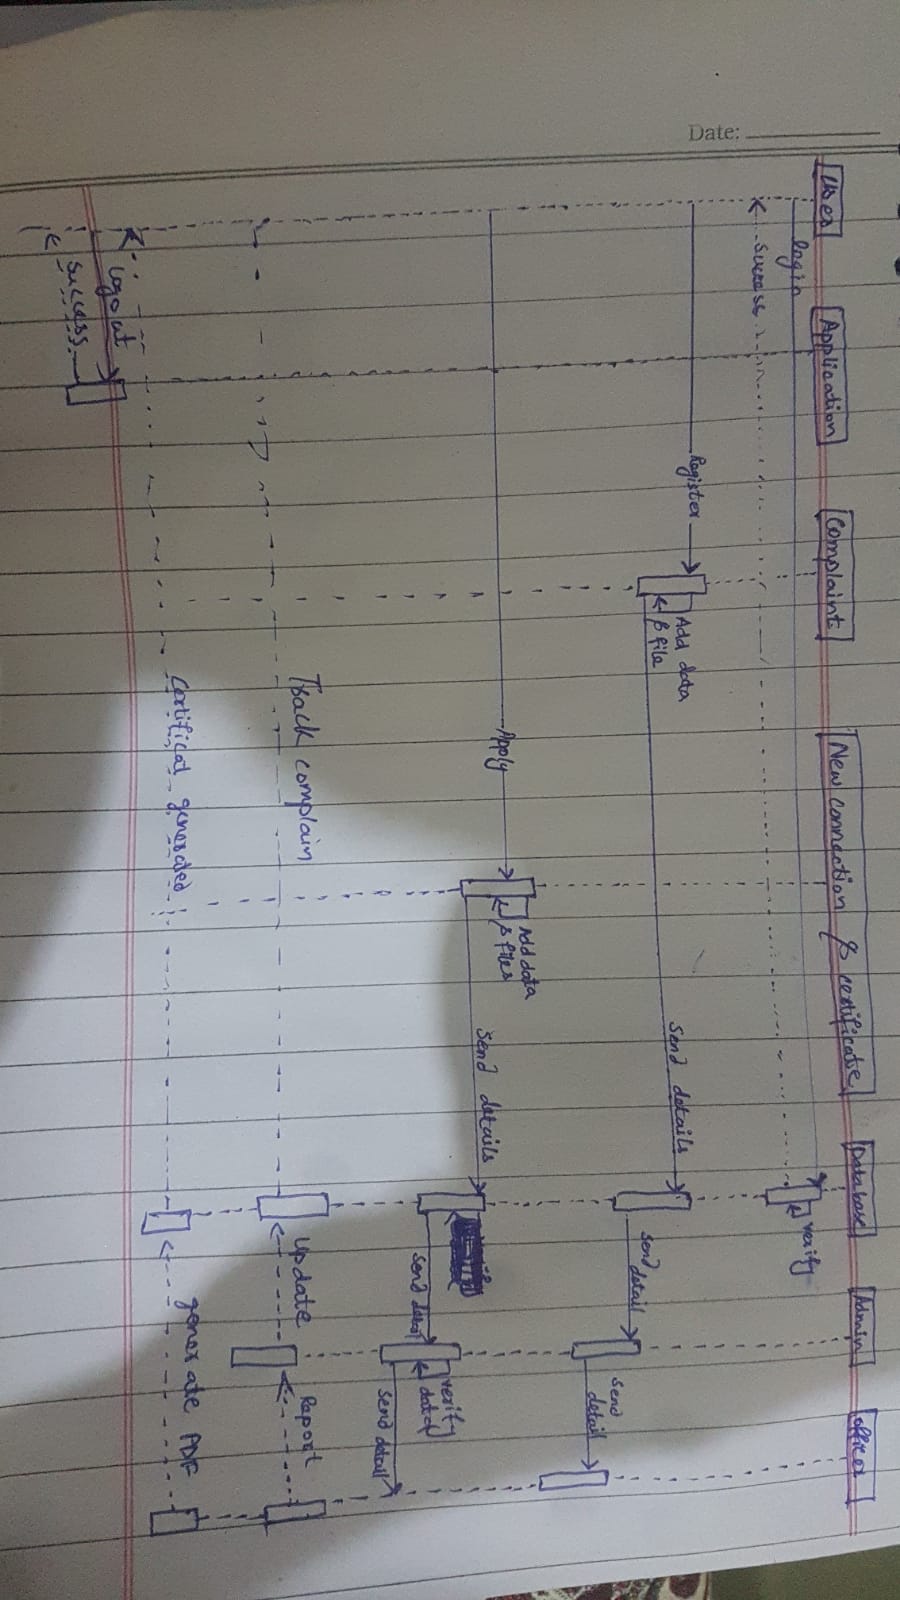 Date:
User
Application
Complaint
New connection & certificate
Database
Admin
officer
login
verify
Success
Register
Add data
& file
Send details
Send
detail
Send
detail
Apply
Add data
& files
Send details
Send detail
verify
data
Send detail
Track complain
Update
Report
Certificat generated
generate PDF
Logout
Success